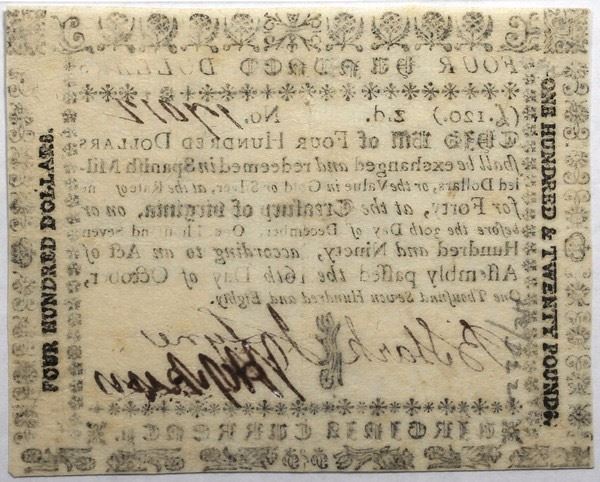 FOUR HUNDRED DOLLARS
(£.120.) 2.d. No.
THIS Bill of FOUR HUNDRED DOLLARS
ſhall be exchanged and redeemed in Spaniſh Mil-
led Dollars, or the Value in Gold or Silver, at the Rate of
for Forty, at the Treaſury of Virginia, on or
before the 30th day of December, One Thouſand Seven
Hundred and Ninety, according to an Act of
Aſſembly paſſed the 16th Day of October,
One Thouſand Seven Hundred and Eighty.
B Stark Lyne
VIRGINIA CURRENCY
FOUR HUNDRED DOLLARS.
ONE HUNDRED & TWENTY POUNDS.